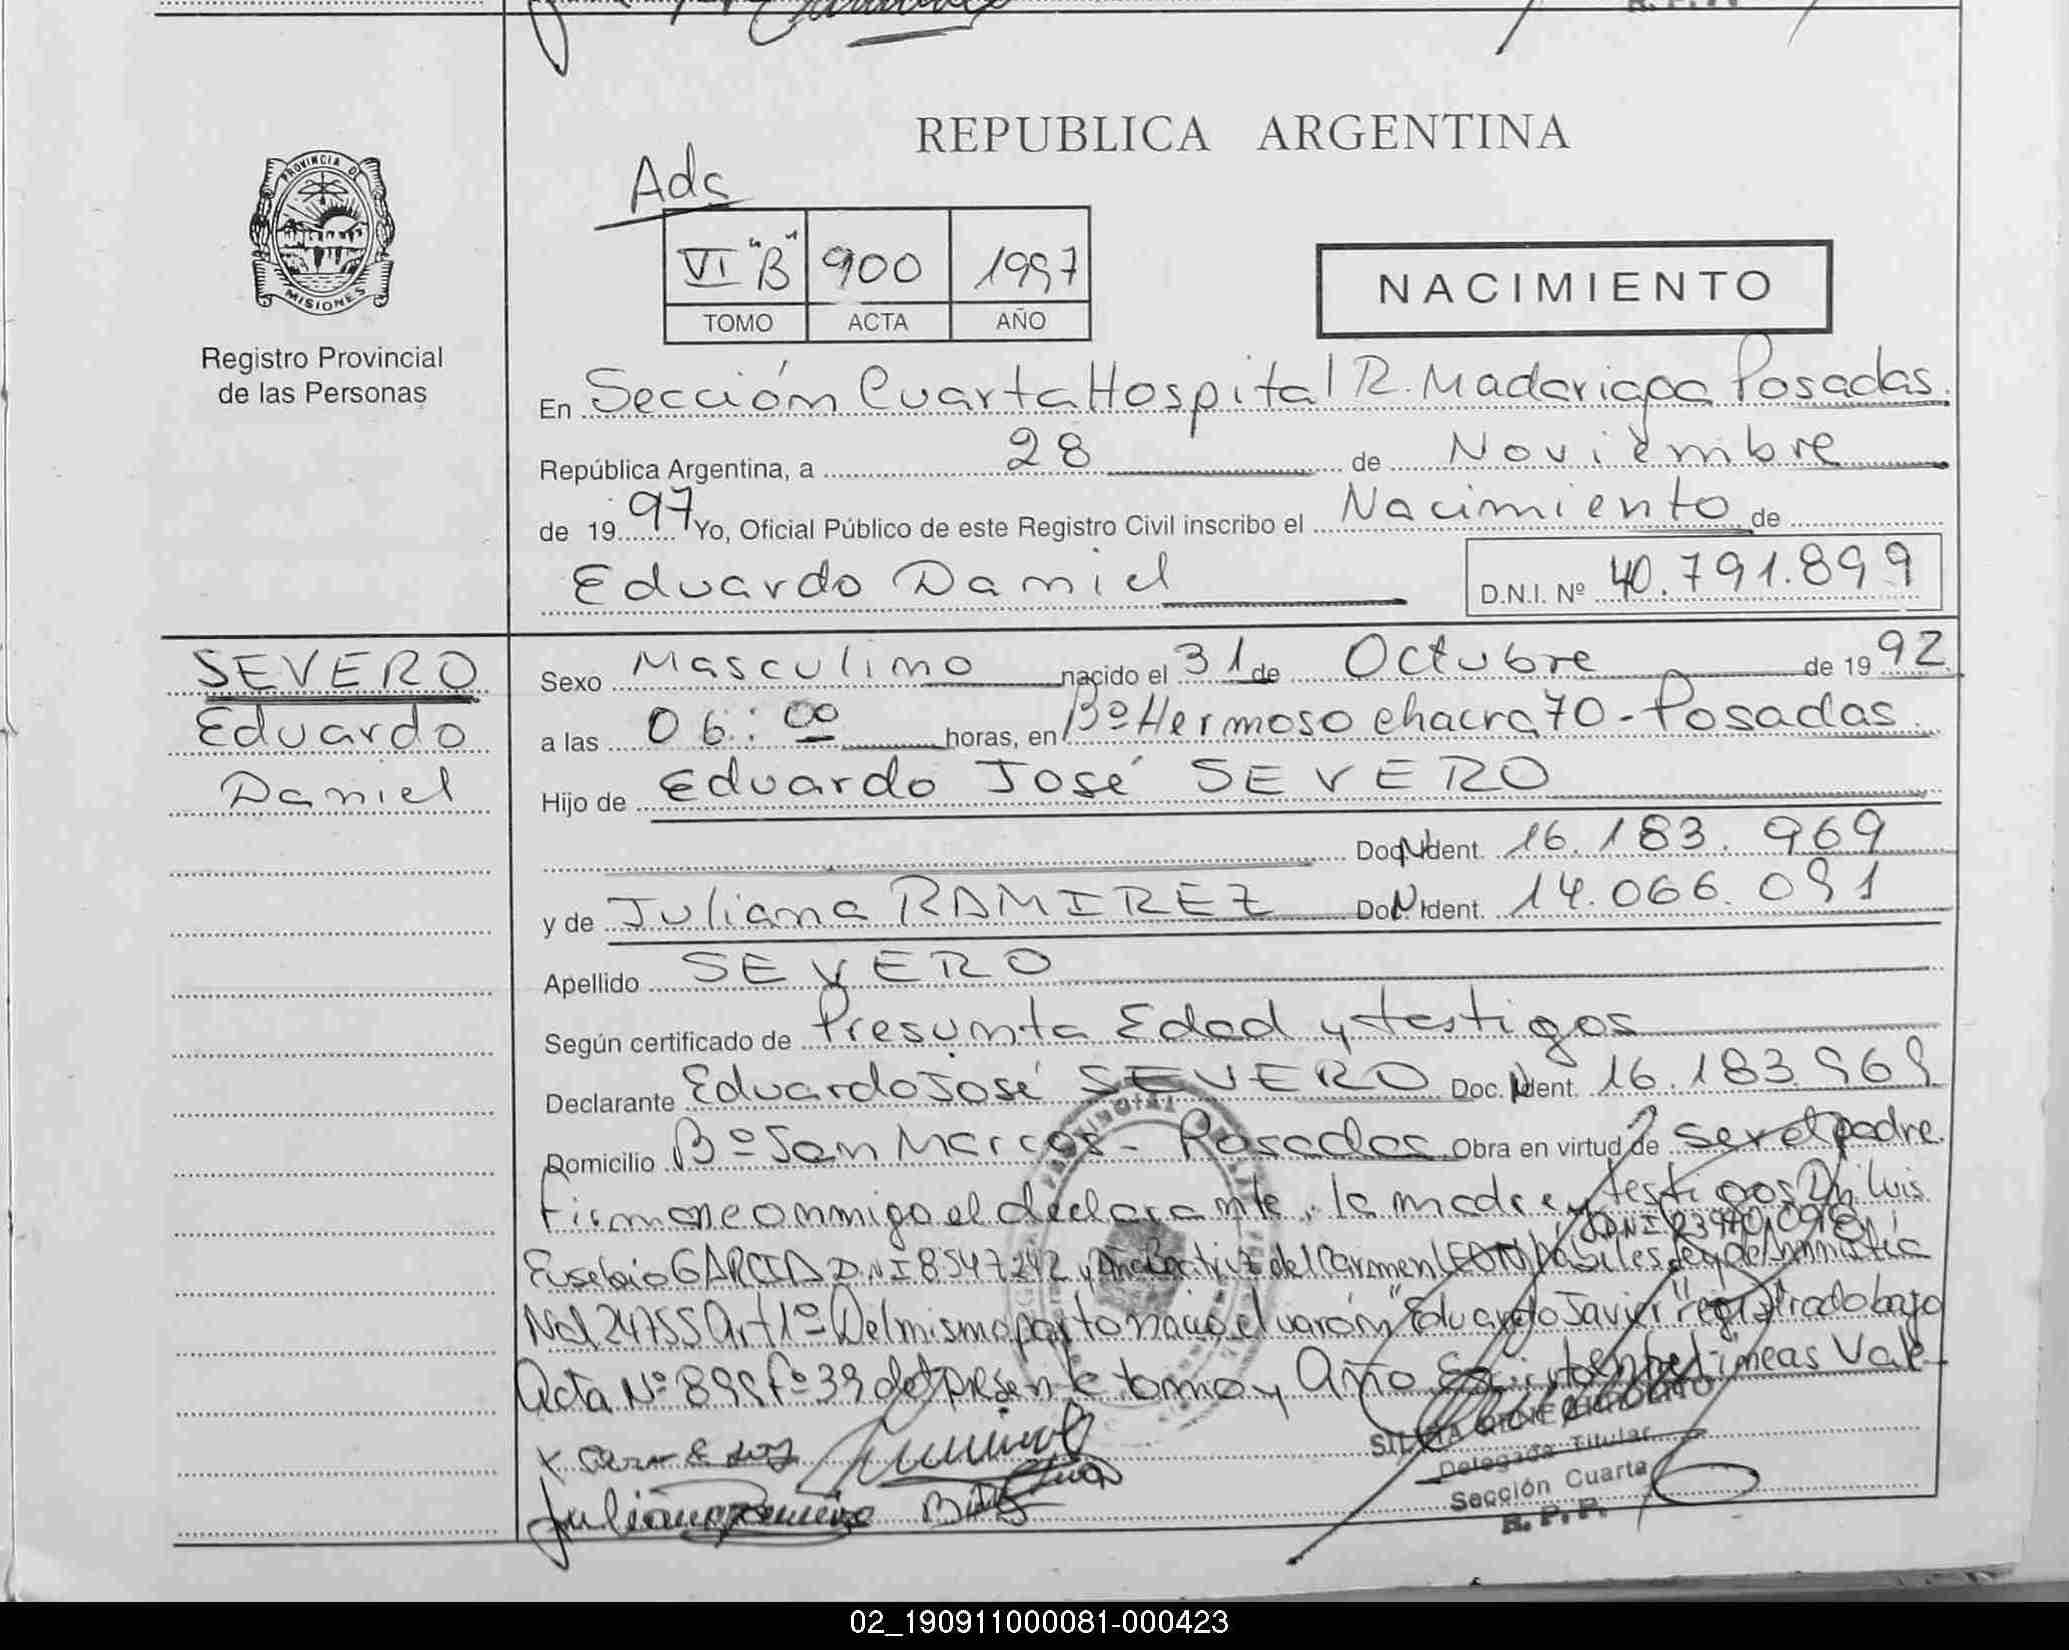 REPUBLICA ARGENTINA
PROVINCIA DE
MISIONES
Registro Provincial
de las Personas
Ads
VI "B" 900 1997
TOMO ACTA AÑO
NACIMIENTO
En Sección Cuarta Hospital R. Madariaga Posadas.
República Argentina, a 28 de Noviembre
de 1997 Yo, Oficial Público de este Registro Civil inscribo el Nacimiento de
Eduardo Daniel
D.N.I. Nº 40.791.899
SEVERO
Eduardo
Daniel
Sexo Masculino nacido el 31 de Octubre de 1992
a las 06:00 horas, en Bº Hermoso chacra 70 - Posadas.
Hijo de Eduardo José SEVERO
Doc. N. Ident. 16.183.969
y de Juliana RAMIREZ Doc. N. Ident. 14.066.091
Apellido SEVERO
Según certificado de Presunta Edad y testigos
Declarante Eduardo José SEVERO Doc. N. Ident. 16.183.969
Domicilio Bº San Marcos - Posadas Obra en virtud de ser el padre.
Firman conmigo el declarante, la madre y testigos Dn Luis
Eusebio GARCIA D.N.I 8547242 y Beatriz del Carmen hábiles Ley de Amnistía
Nal 24755 Art 1º Del mismo parto nació el varón "Eduardo Javier" registrado bajo
Acta Nº 899 fº 39 del presente tomo y Año Escrito entre líneas Vale
Delegada Titular
Sección Cuarta
R. P. P.
02_190911000081-000423